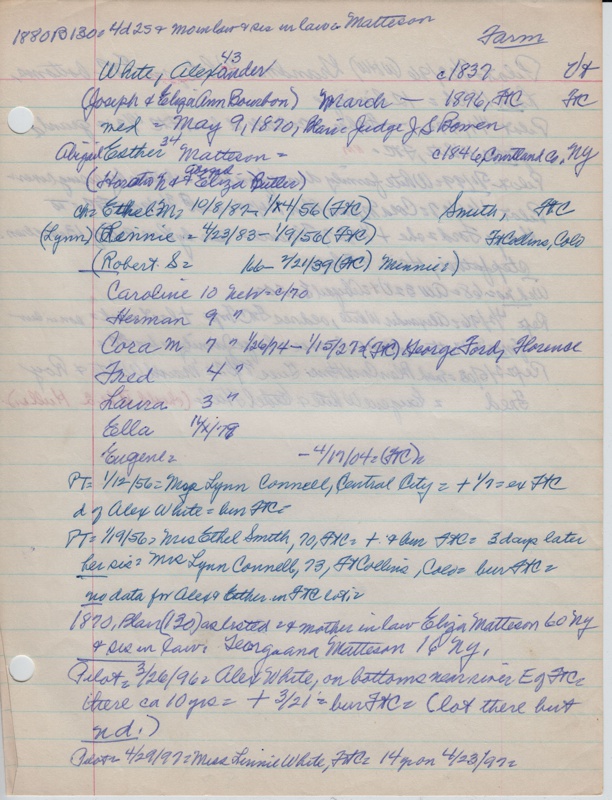 1880 B130 = 4d 25 & Mominlaw & sis in law = Matteson
Farm
White, Alexander 43 c/1837 Vt
(Joseph & Eliza Ann Bourbon) March — 1896, FtC FtC
med = May 9, 1870, Blair = Judge J.S. Bowen
Abigail Esther 34 Matteson = c1846, Courtland Co, NY
(Horatio N & Abigail Eliza Butler)
ch = Ethel M, 10/8/87 - 1/14/56 (FtC) Smith, FtC
(Lynn) Rinnie = 4/23/83 - 1/9/56 (FtC) FtCollins, Colo
(Robert S = 66 - 2/21/39 (FtC) Minnie =)
Caroline 10 Neb = c/70
Herman 9 "
Cora M 7 " 1/26/74 - 1/15/27 = (FtC) George Ford, Florence
Fred 4 "
Laura 3 "
Ella 1/4 /78
Eugene = - 4/17/04 = (FtC)
PT = 1/12/56 = Mrs Lynn Connell, Central City = + 1/7 = ex FtC
d of Alex White = bur FtC =
PT = 1/19/56 = Mrs Ethel Smith, 70, FtC = + & bur FtC = 3 days later
her sis = Mrs Lynn Connell, 73, FtCollins, Colo = bur FtC =
no data for Alex & Esther in FtC lot =
1870, Blair (130) as listed = & mother in law Eliza Matteson 60 NY
& sis in law = Georgeanna Matteson 16 NY,
Pilot = 3/26/96 = Alex White, on bottoms near river E of FtC =
there ca 10 yrs = + 3/21 = bur FtC = (lot there but
nd.)
Pilot = 4/29/97 = Miss Linnie White, FtC = 14 yr on 4/23/97 =